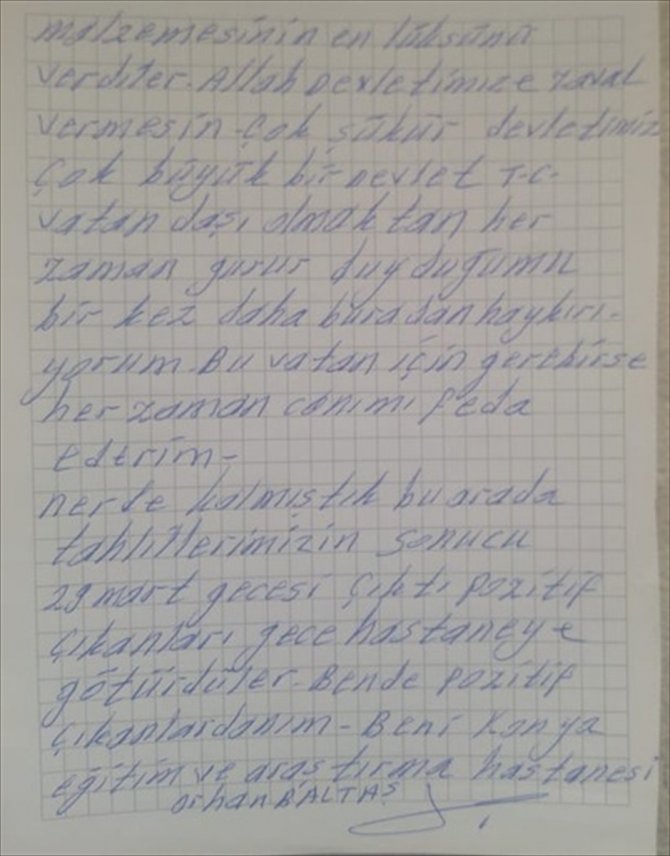 malzemesinin en lüksünü
verdiler. Allah Devletimize zaval
vermesin - Çok şükür devletimiz
Çok büyük bir Devlet T.C.
vatan daşı olmak tan her
zaman gurur duyduğumu
bir kez daha buradan haykırı-
yorum. Bu vatan için gerekirse
her zaman canımı feda
ederim -
nerde kalmıştık bu arada
tahlillerimizin sonucu
29 mart gecesi çıktı pozitif
çıkanları gece hastaneye
götürdüler - Bende pozitif
çıkanlardanım - Beni Konya
eğitim ve araştırma hastanesi
Orhan BALTAŞ